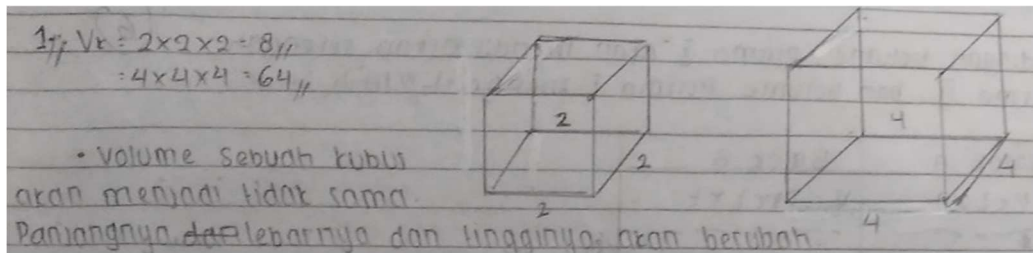 1,, Vk = 2×2×2 = 8,,
= 4×4×4 = 64,,
2
2
2
4
4
4
• Volume sebuah kubus
akan menjadi tidak sama.
Panjangnya, lebarnya dan tingginya akan berubah